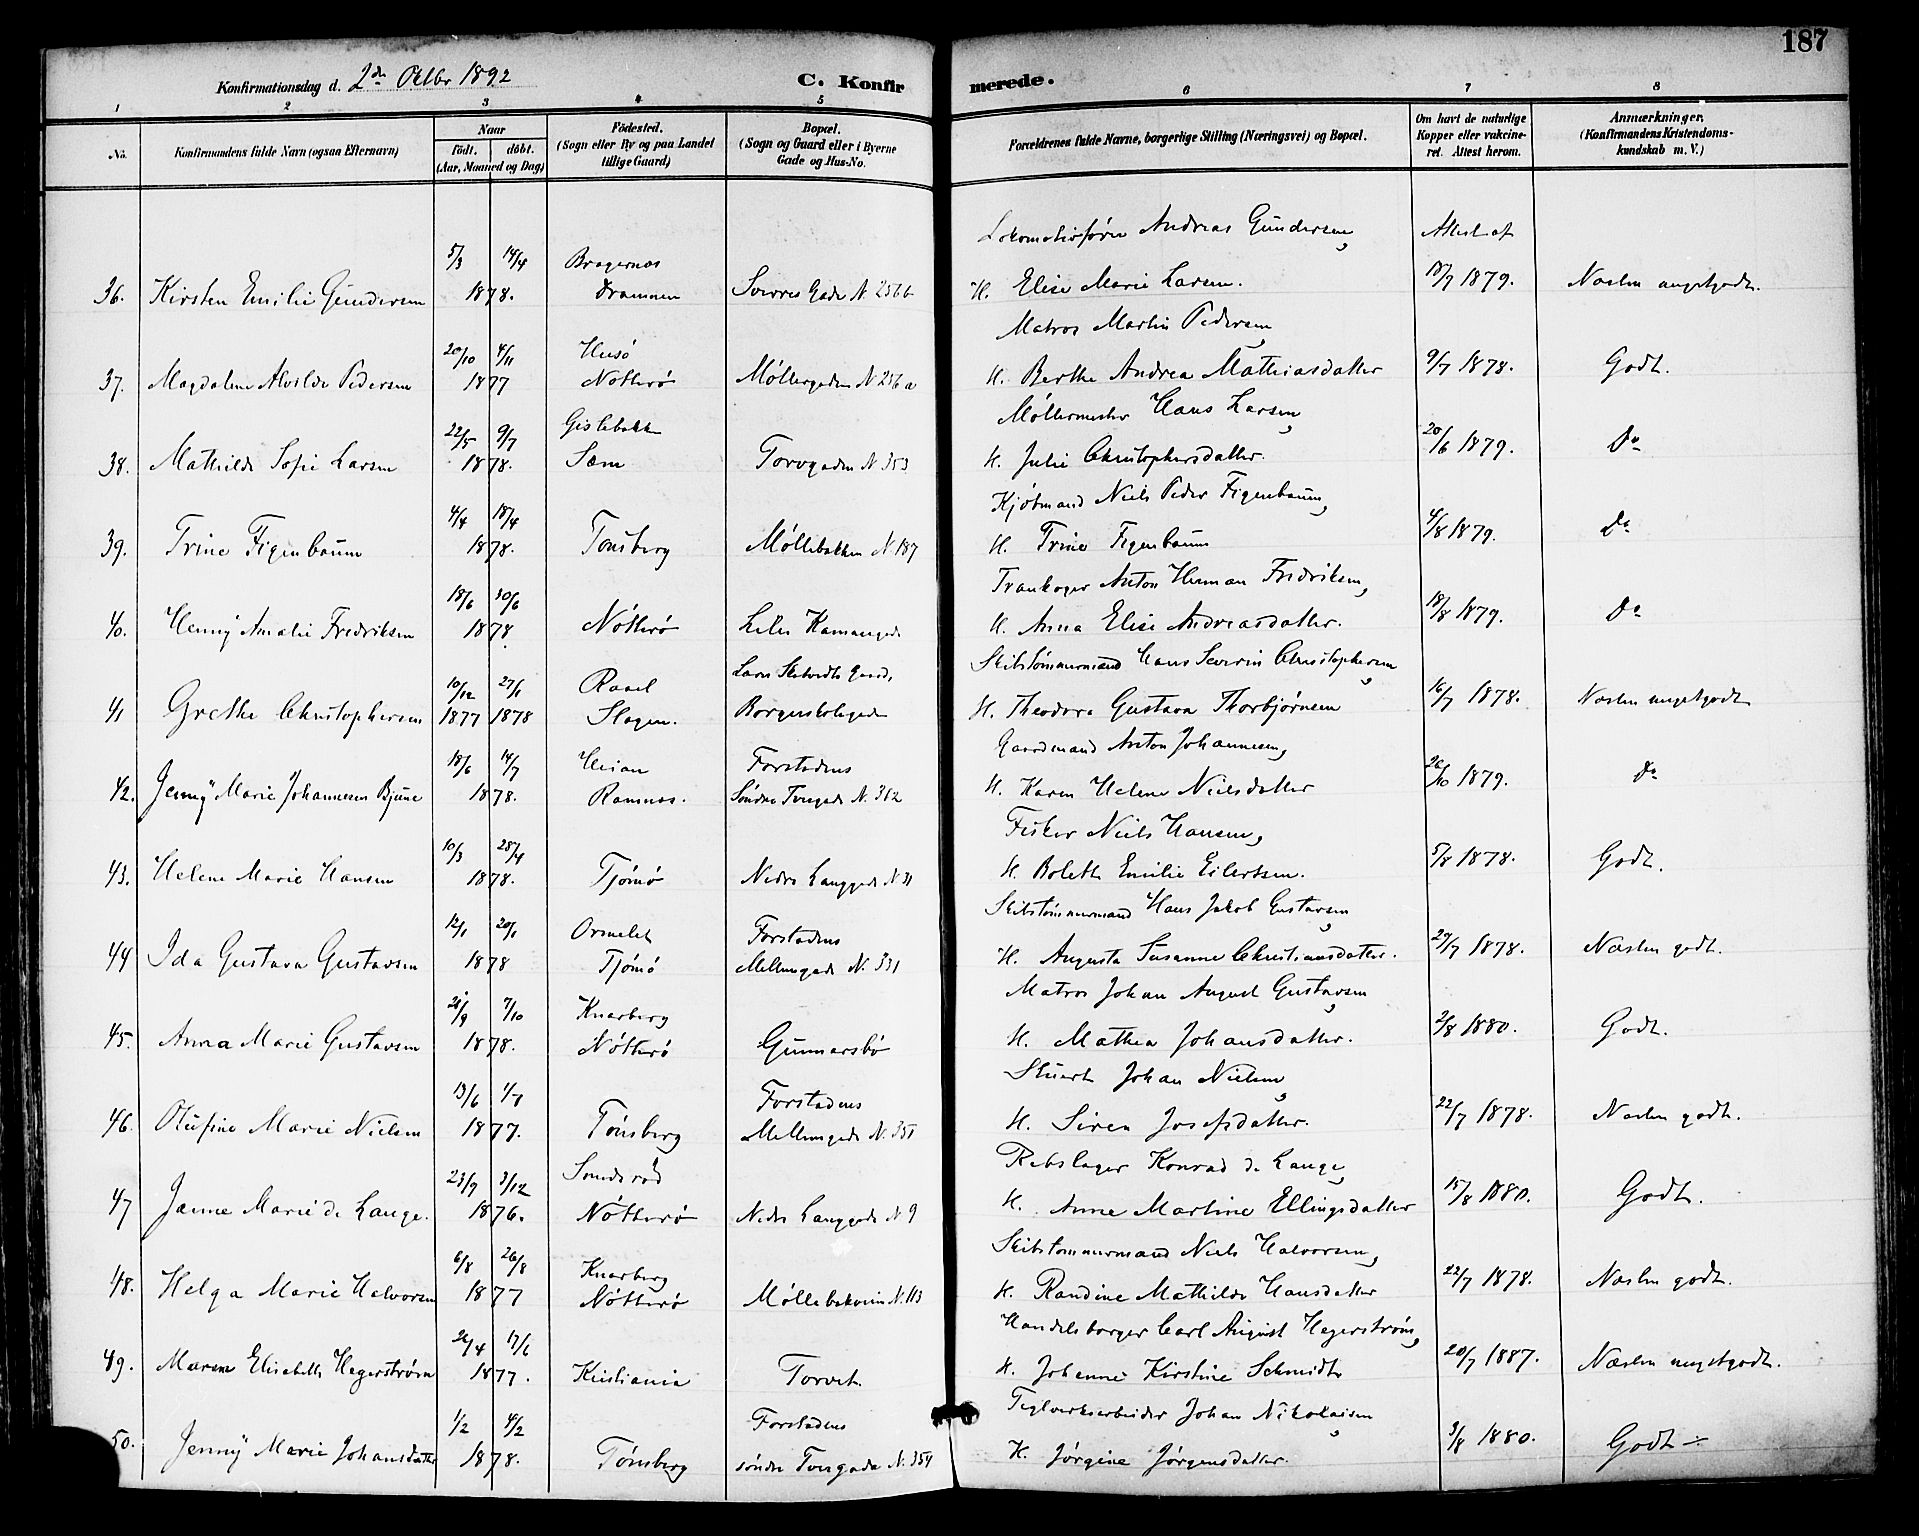 187
Konfirmationsdag d. 2den Oktbr 1892
C. Konfirmerede.
1 2 3 4 5 6 7 8
No.
Konfirmandens fulde Navn (ogsaa Efternavn)
Naar
födt. döbt.
(Aar, Maaned og Dag)
Födested.
(Sogn eller By og paa Landet
tillige Gaard)
Bopæl.
(Sogn og Gaard eller i Byerne
Gade og Hus-No.
Forældrenes fulde Navne, borgerlige Stilling (Næringsvei) og Bopæl.
Om havt de naturlige
Kopper eller vakcine-
ret. Attest herom.
Anmærkninger.
(Konfirmandens Kristendoms-
kundskab m. V.)
Lokomotivfører Andreas Gundersen, Attest af
5/3 14/4 Bragernæs
36. Kirsten Emilie Gundersen 1878. Drammen Gade N. 256b H. Elise Marie Larsen. 18/7 1879. Næsten megetgodt.
Matros Martin Pedersen,
20/10 4/11 Husö
37. Magdalene Alvilde Pedersen 1877 Nötterö Møllergaden N. 256a H. Berthe Andrea Mathiasdatter 9/7 1878. Godt.
Møllermester Hans Larsen,
22/5 9/7 Gislebakken
38. Mathilde Sofie Larsen 1878. Sæm Torvgaden N. 353 H. Julie Christophersdatter. 20/6 1879. Do
Kjöbmand Niels Peder Figenbaum,
4/4 18/4
39. Trine Figenbaum 1878. Tønsberg Møllebakken N. 187 H. Trine Figenbaum 4/8 1879. Do
Trankoger Anton Herman Fredriksen,
18/6 30/6
40. Henny Amalie Fredriksen 1878. Nötterö Lille Kamengade H. Anna Elise Andreasdatter. 18/8 1879. Do
Skibstömmermand Hans Severin Christophersen,
10/12 27/1 Raael Lars Gaard,
41 Grethe Christophersen 1877 1878 Slagen. Borgeskolegaden H. Theodora Gustava Thorbjørnsen 16/7 1878. Næsten megetgodt
Gaardmand Anton Johannesen,
18/6 14/7 Forstadens
42. Jenny Marie Johannesen Bjune 1878. Ramnæs. Söndre Torvgade N. 312 H. Karen Helene Nielsdatter 26/10 1879. Do
Fisker Niels Hansen,
10/3 28/4
43. Helene Marie Hansen 1878. Tjömö Nedre Langgade N. 31 H. Boleth Emilie Eilertsen. 5/8 1878. Godt.
Skibstömmermand Hans Jakob Gustavsen,
12/1 20/1 Ormelet Forstadens
44 Ida Gustava Gustavsen 1878 Tjömö Mellemgade N. 331 H. Augusta Susanne Christiansdatter. 29/7 1878. Næsten godt.
Matros Johan August Gustavsen,
21/9 7/10 Knarberg
45. Anna Marie Gustavsen 1878. Nötterö Gunnarsbö H. Mathea Johansdatter. 2/8 1880. Godt.
Stuert Johan Nielsen,
13/6 1/7 Forstadens
46. Olufine Marie Nielsen 1877. Tönsberg Mellemgade N. 351 H. Siren Josefsdatter. 22/7 1878. Næsten godt.
Rebslager Konrad de Lange,
23/9 3/12
47 Janne Marie de Lange. 1876. Nötterö Nedre Langgade N. 9 H. Anne Martine Ellingsdatter 15/8 1880. Godt.
Skibstømmermand Niels Halvorsen,
6/8 26/8 Knarberg
48. Helga Marie Halvorsen 1877 Nötterö Møllebakveien N. 113 H. Randine Mathilde Hansdatter 22/7 1878. Næsten godt.
Handelsborger Carl August Hegerstrøm,
24/4 17/6
49. Maren Elisabeth Hegerstrøm 1877. Kristiania Torvet. H. Johanne Kirstine Schmidt 20/7 1887. Næsten megetgodt.
Teglverksarbeider Johan Nikolaisen,
1/2 4/2 Forstadens
50. Jenny Marie Johansdatter 1878. Tönsberg söndre Torvgade N. 354 H. Jørgine Jørgensdatter. 3/8 1880. Godt ÷